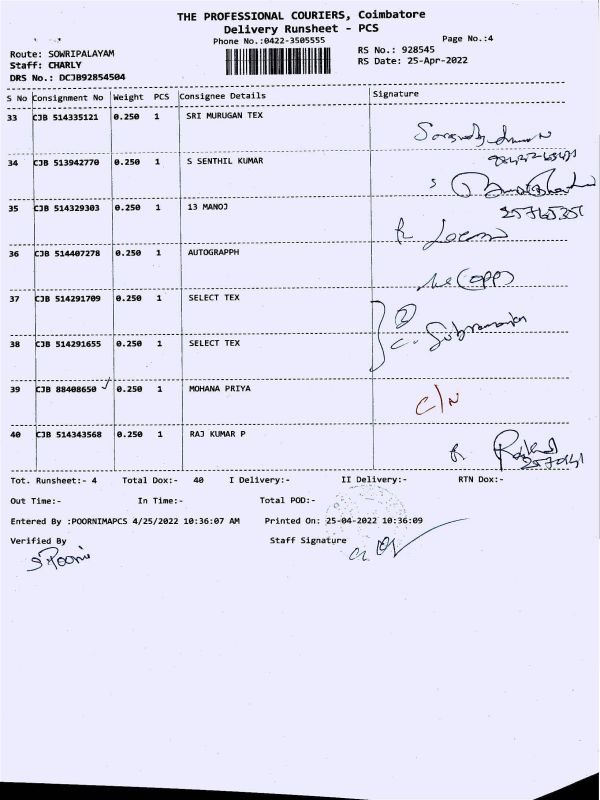 THE PROFESSIONAL COURIERS, Coimbatore
Delivery Runsheet - PCS
Phone No.:0422-3505555
Page No.:4
Route: SOWRIPALAYAM
RS No.: 928545
Staff: CHARLY
RS Date: 25-Apr-2022
DRS No.: DCJB92854504
S No Consignment No Weight PCS Consignee Details Signature
33 CJB 514335121 0.250 1 SRI MURUGAN TEX
34 CJB 513942770 0.250 1 S SENTHIL KUMAR
35 CJB 514329303 0.250 1 13 MANOJ
36 CJB 514407278 0.250 1 AUTOGRAPPH
(OPP)
37 CJB 514291709 0.250 1 SELECT TEX
②
C. Subramanian
38 CJB 514291655 0.250 1 SELECT TEX
39 CJB 88408650 ✓ 0.250 1 MOHANA PRIYA C/N
40 CJB 514343568 0.250 1 RAJ KUMAR P
Tot. Runsheet:- 4 Total Dox:- 40 I Delivery:- II Delivery:- RTN Dox:-
Out Time:- In Time:- Total POD:-
Entered By :POORNIMAPCS 4/25/2022 10:36:07 AM Printed On: 25-04-2022 10:36:09
Verified By Staff Signature